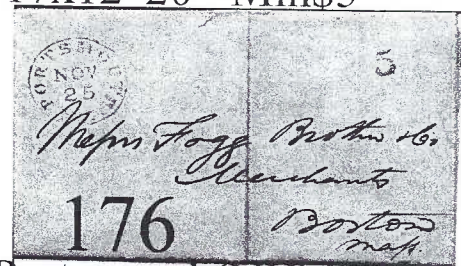 PORTSMOUTH
NOV
25
5
Messrs Fogg Brother & Co
Merchants
Boston
Mass.
176